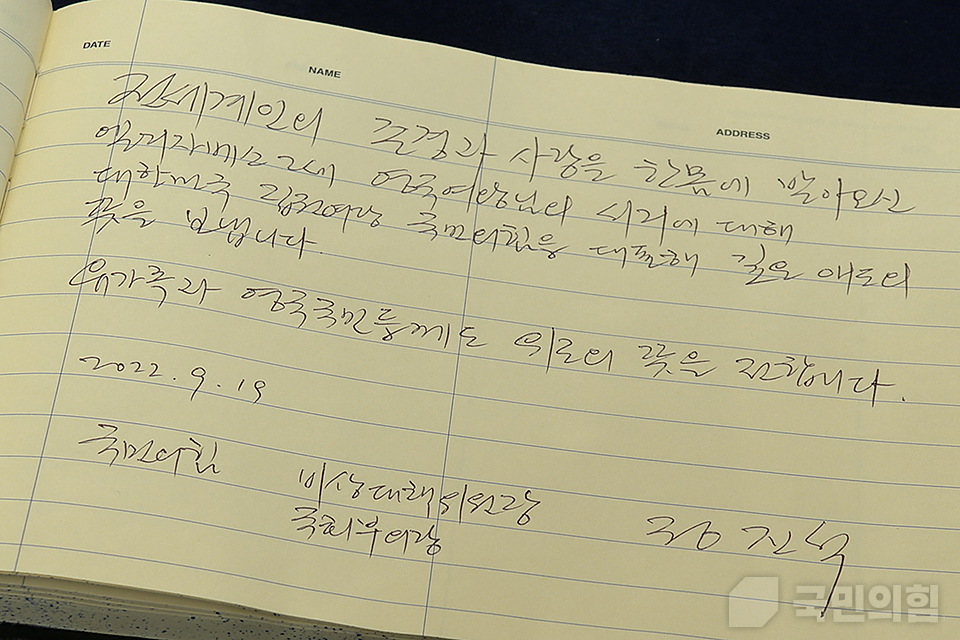 DATE NAME ADDRESS
전세계인의 존경과 사랑을 한몸에 받아오신
엘리자베스 2세 영국여왕님의 서거에 대해
대한민국 집권여당 국민의힘을 대표해 깊은 애도의
뜻을 보냅니다.
유가족과 영국국민들께도 위로의 뜻을 전합니다.
2022. 9. 19
국민의힘 비상대책위원장
국회부의장 정진석
국민의힘